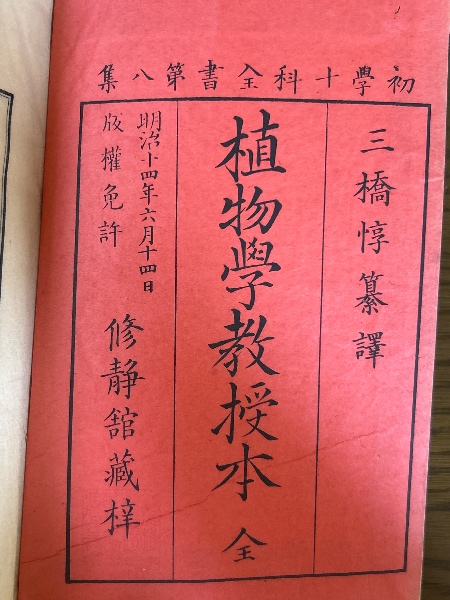 初學十科全書第八集
三橋惇纂譯
植物學教授本 全
明治十四年六月十四日
版權免許
修靜舘藏梓